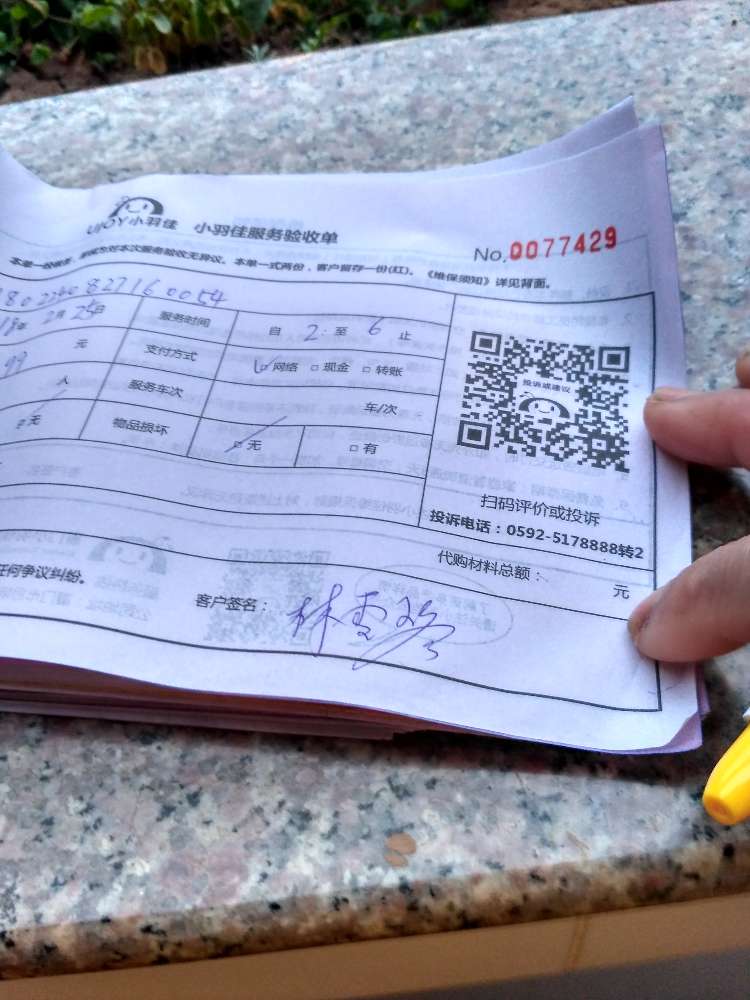 UJOY小羽佳 小羽佳服务验收单
No.0077429
本单一经签名，即视为对本次服务验收无异议。本单一式两份，客户留存一份(红)。《维保须知》详见背面。
80224082716 0054
18年 2月 25日 服务时间 自 2: 至 6 止
99 元 支付方式 网络 现金 转账
人 服务车次 车/次
无 物品损坏 无 有
投诉或建议
扫码评价或投诉
投诉电话：0592-5178888转2
代购材料总额： 元
任何争议纠纷。
客户签名：